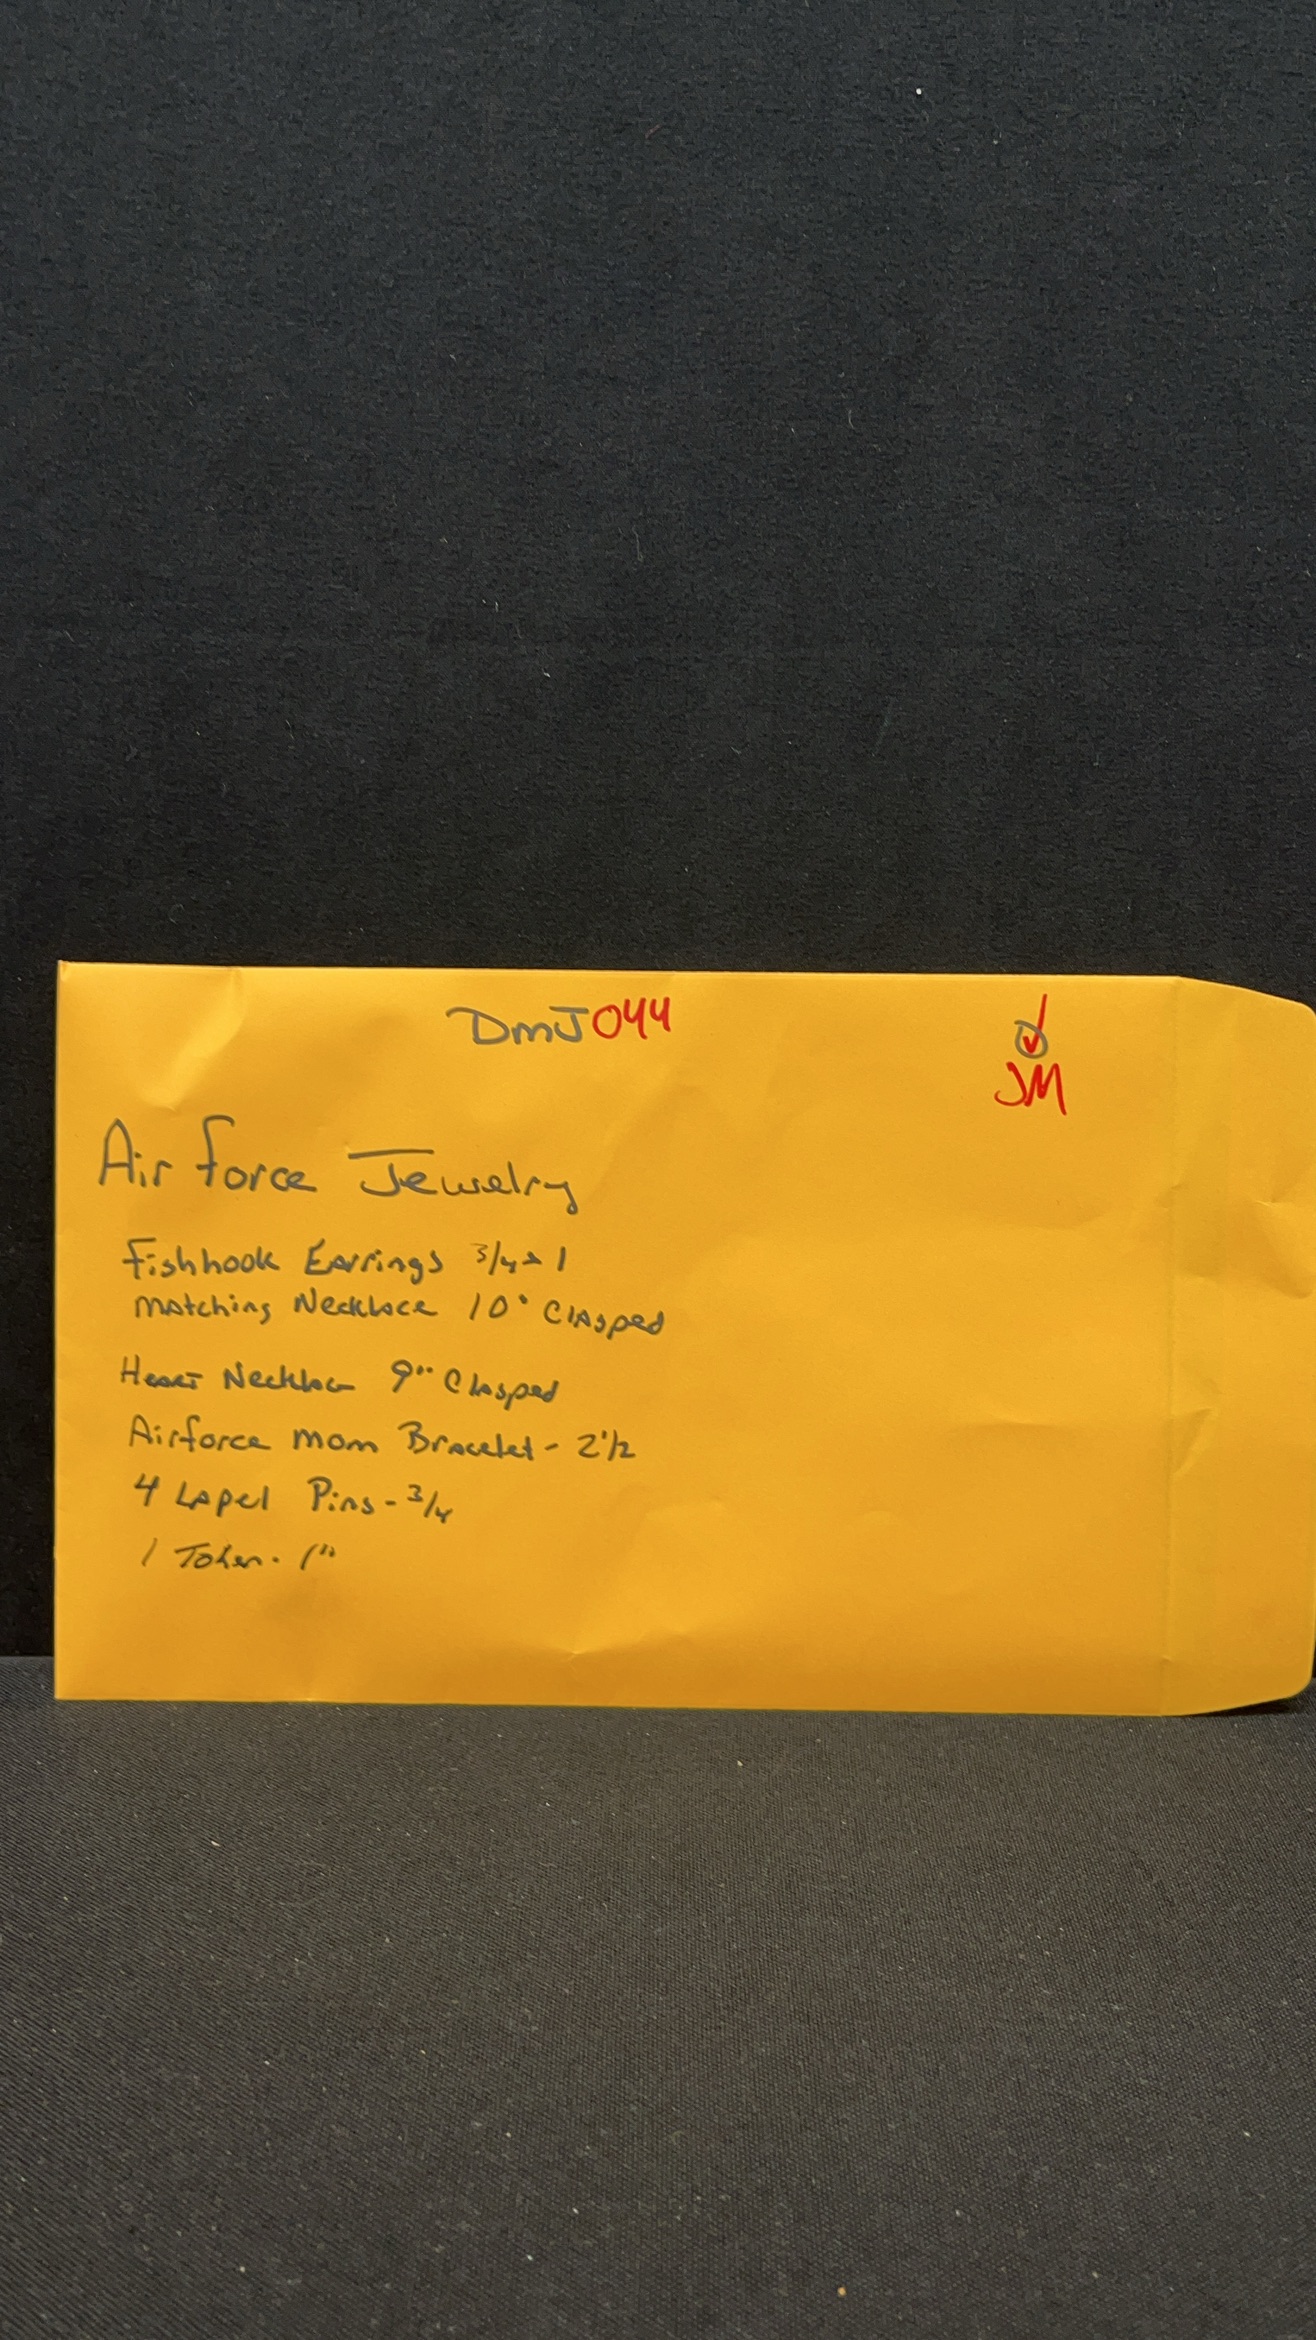 DmJ044
JM
Air force Jewelry
Fishhook Earrings 3/4 x 1
Matching Necklace 10" Clasped
Heart Necklace 9" Clasped
Airforce mom Bracelet - 2 1/2
4 Lapel Pins - 3/4
1 Token - 1"